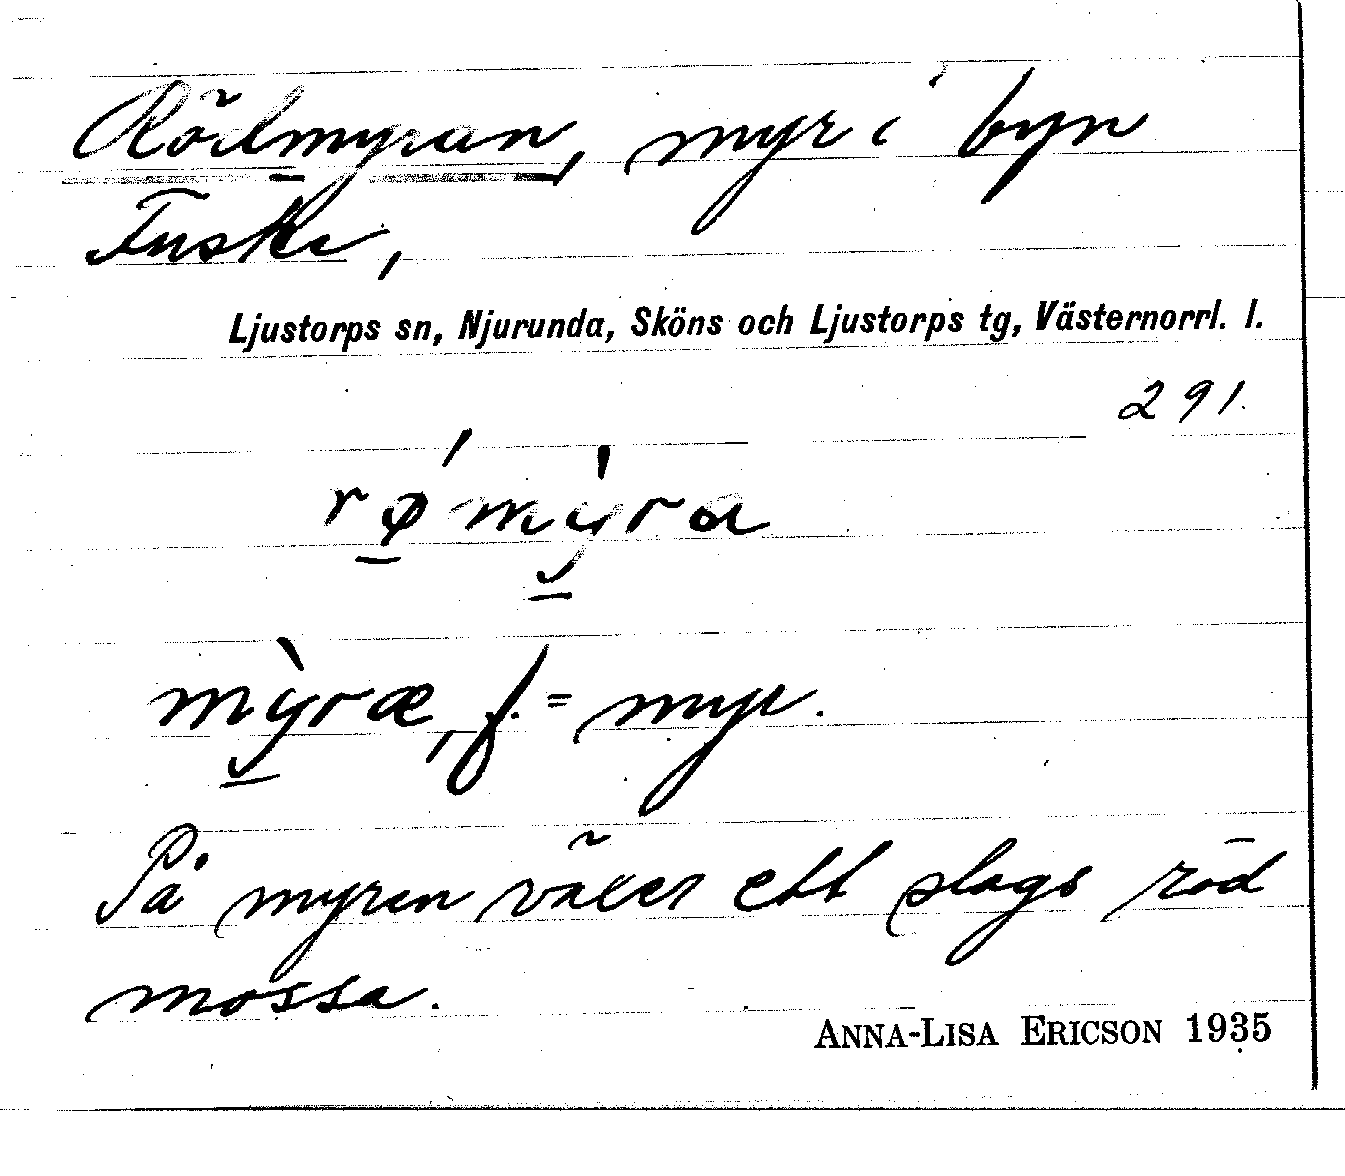 Rödmyran, myr i byn
Fuske,
Ljustorps sn, Njurunda, Sköns och Ljustorps tg, Västernorrl. l.
291.
rǿmỳra
mỳræ, f. = myr.
På myren växer ett slags röd
mossa.
ANNA-LISA ERICSON 1935